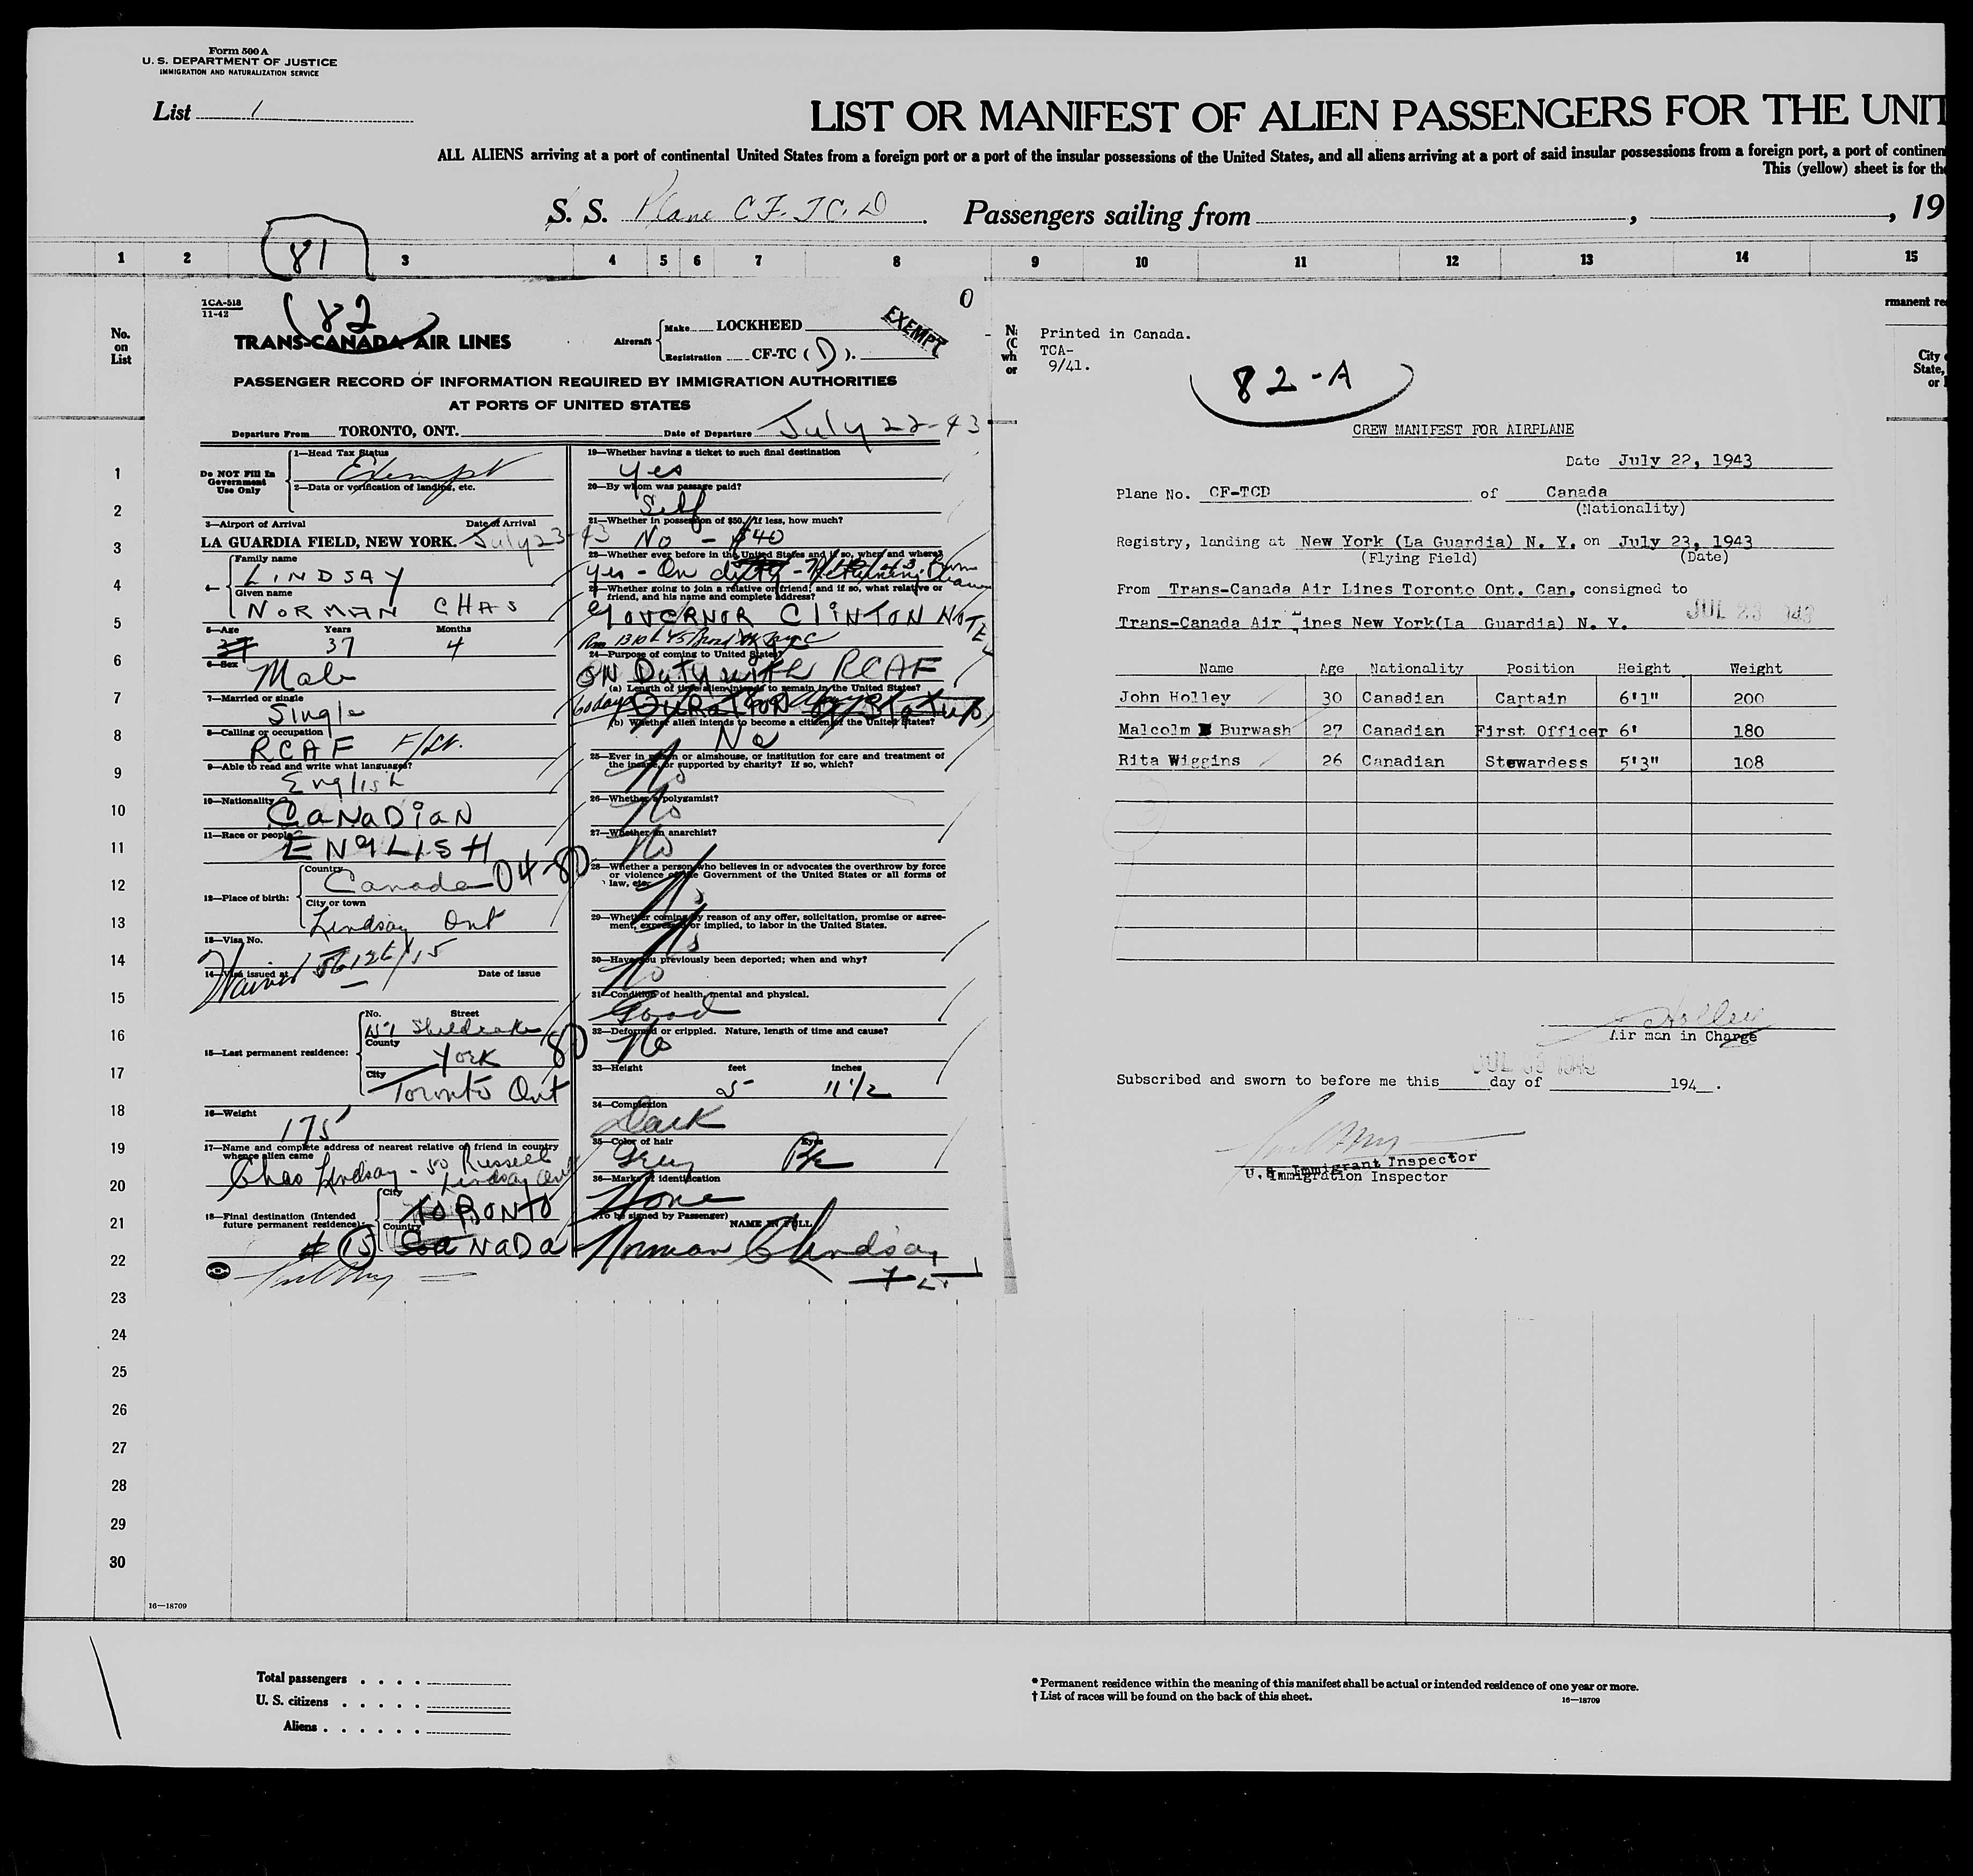 Form 500 A
U. S. DEPARTMENT OF JUSTICE
IMMIGRATION AND NATURALIZATION SERVICE
List 1
LIST OR MANIFEST OF ALIEN PASSENGERS FOR THE UNIT
ALL ALIENS arriving at a port of continental United States from a foreign port or a port of the insular possessions of the United States, and all aliens arriving at a port of said insular possessions from a foreign port, a port of continen
This (yellow) sheet is for the
S. S. Plane CF. TC. D. Passengers sailing from , , 19
81
1 2 3 4 5 6 7 8 9 10 11 12 13 14 15
No. on List
TCA-518
11-42
82
TRANS-CANADA AIR LINES
Aircraft
Make LOCKHEED
Registration CF-TC (D).
EXEMPT
0
PASSENGER RECORD OF INFORMATION REQUIRED BY IMMIGRATION AUTHORITIES
AT PORTS OF UNITED STATES
Departure From TORONTO, ONT. Date of Departure July 22-43
Do NOT Fill In Government Use Only
1—Head Tax Status
Exempt
2—Data or verification of landing, etc.
3—Airport of Arrival Date of Arrival
LA GUARDIA FIELD, NEW YORK. July 23-43
4—
Family name
LINDSAY
Given name
NORMAN CHAS
5—Age Years Months
37 4
6—Sex
Male
7—Married or single
Single
8—Calling or occupation
RCAF F/Lt.
9—Able to read and write what languages?
English
10—Nationality
CANADIAN
11—Race or people
ENGLISH
12—Place of birth:
Country
Canada 04-80
City or town
Lindsay Ont
13—Visa No.
14—Visa issued at Date of issue
15—Last permanent residence:
No. Street
County
York 80
City
Toronto Ont
16—Weight
175
17—Name and complete address of nearest relative or friend in country
whence alien came
Chas Lindsay - 50 Russell
Lindsay Ont
18—Final destination (Intended
future permanent residence):
City
TORONTO
Country
# 15 CANADA
19—Whether having a ticket to such final destination
yes
20—By whom was passage paid?
Self
21—Whether in possession of $50. If less, how much?
No - $40
22—Whether ever before in the United States and if so, when and where?
yes - On
23—Whether going to join a relative or friend; and if so, what relative or
friend, and his name and complete address?
GOVERNOR CLINTON HOTEL
24—Purpose of coming to United States?
ON Duty with RCAF
(a) Length of time alien intends to remain in the United States?
60 days
(b) Whether alien intends to become a citizen of the United States?
No
25—Ever in prison or almshouse, or institution for care and treatment of
the insane, or supported by charity? If so, which?
No
26—Whether a polygamist?
No
27—Whether an anarchist?
No
28—Whether a person who believes in or advocates the overthrow by force
or violence of the Government of the United States or all forms of
law, etc.
No
29—Whether coming by reason of any offer, solicitation, promise or agree-
ment, expressed or implied, to labor in the United States.
No
30—Have you previously been deported; when and why?
No
31—Condition of health, mental and physical.
Good
32—Deformed or crippled. Nature, length of time and cause?
No
33—Height feet inches
5 11 1/2
34—Complexion
Dark
35—Color of hair Eyes
Grey
36—Marks of identification
None
(To be signed by Passenger) NAME IN FULL
Norman C Lindsay
F/Lt
Printed in Canada.
TCA-
9/41.
82-A
CREW MANIFEST FOR AIRPLANE
Date July 22, 1943
Plane No. CF-TCD of Canada
(Nationality)
Registry, landing at New York (La Guardia) N. Y. on July 23, 1943
(Flying Field) (Date)
From Trans-Canada Air Lines Toronto Ont. Can. consigned to
JUL 23 1943
Trans-Canada Air Lines New York(La Guardia) N. Y.
Name Age Nationality Position Height Weight
John Holley 30 Canadian Captain 6'1" 200
Malcolm Burwash 27 Canadian First Officer 6' 180
Rita Wiggins 26 Canadian Stewardess 5'3" 108
Holley
Air man in Charge
Subscribed and sworn to before me this day of 194 .
U.S. Immigrant Inspector
U. S. Immigration Inspector
rmanent re
City
State,
or
1
2
3
4
5
6
7
8
9
10
11
12
13
14
15
16
17
18
19
20
21
22
23
24
25
26
27
28
29
30
16—18709
Total passengers . . . .
U. S. citizens . . . . .
Aliens . . . . . .
* Permanent residence within the meaning of this manifest shall be actual or intended residence of one year or more.
† List of races will be found on the back of this sheet. 16—18709